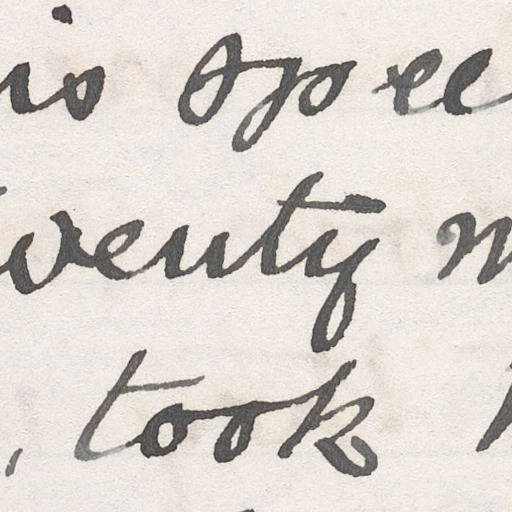 is spee
wenty m
, took